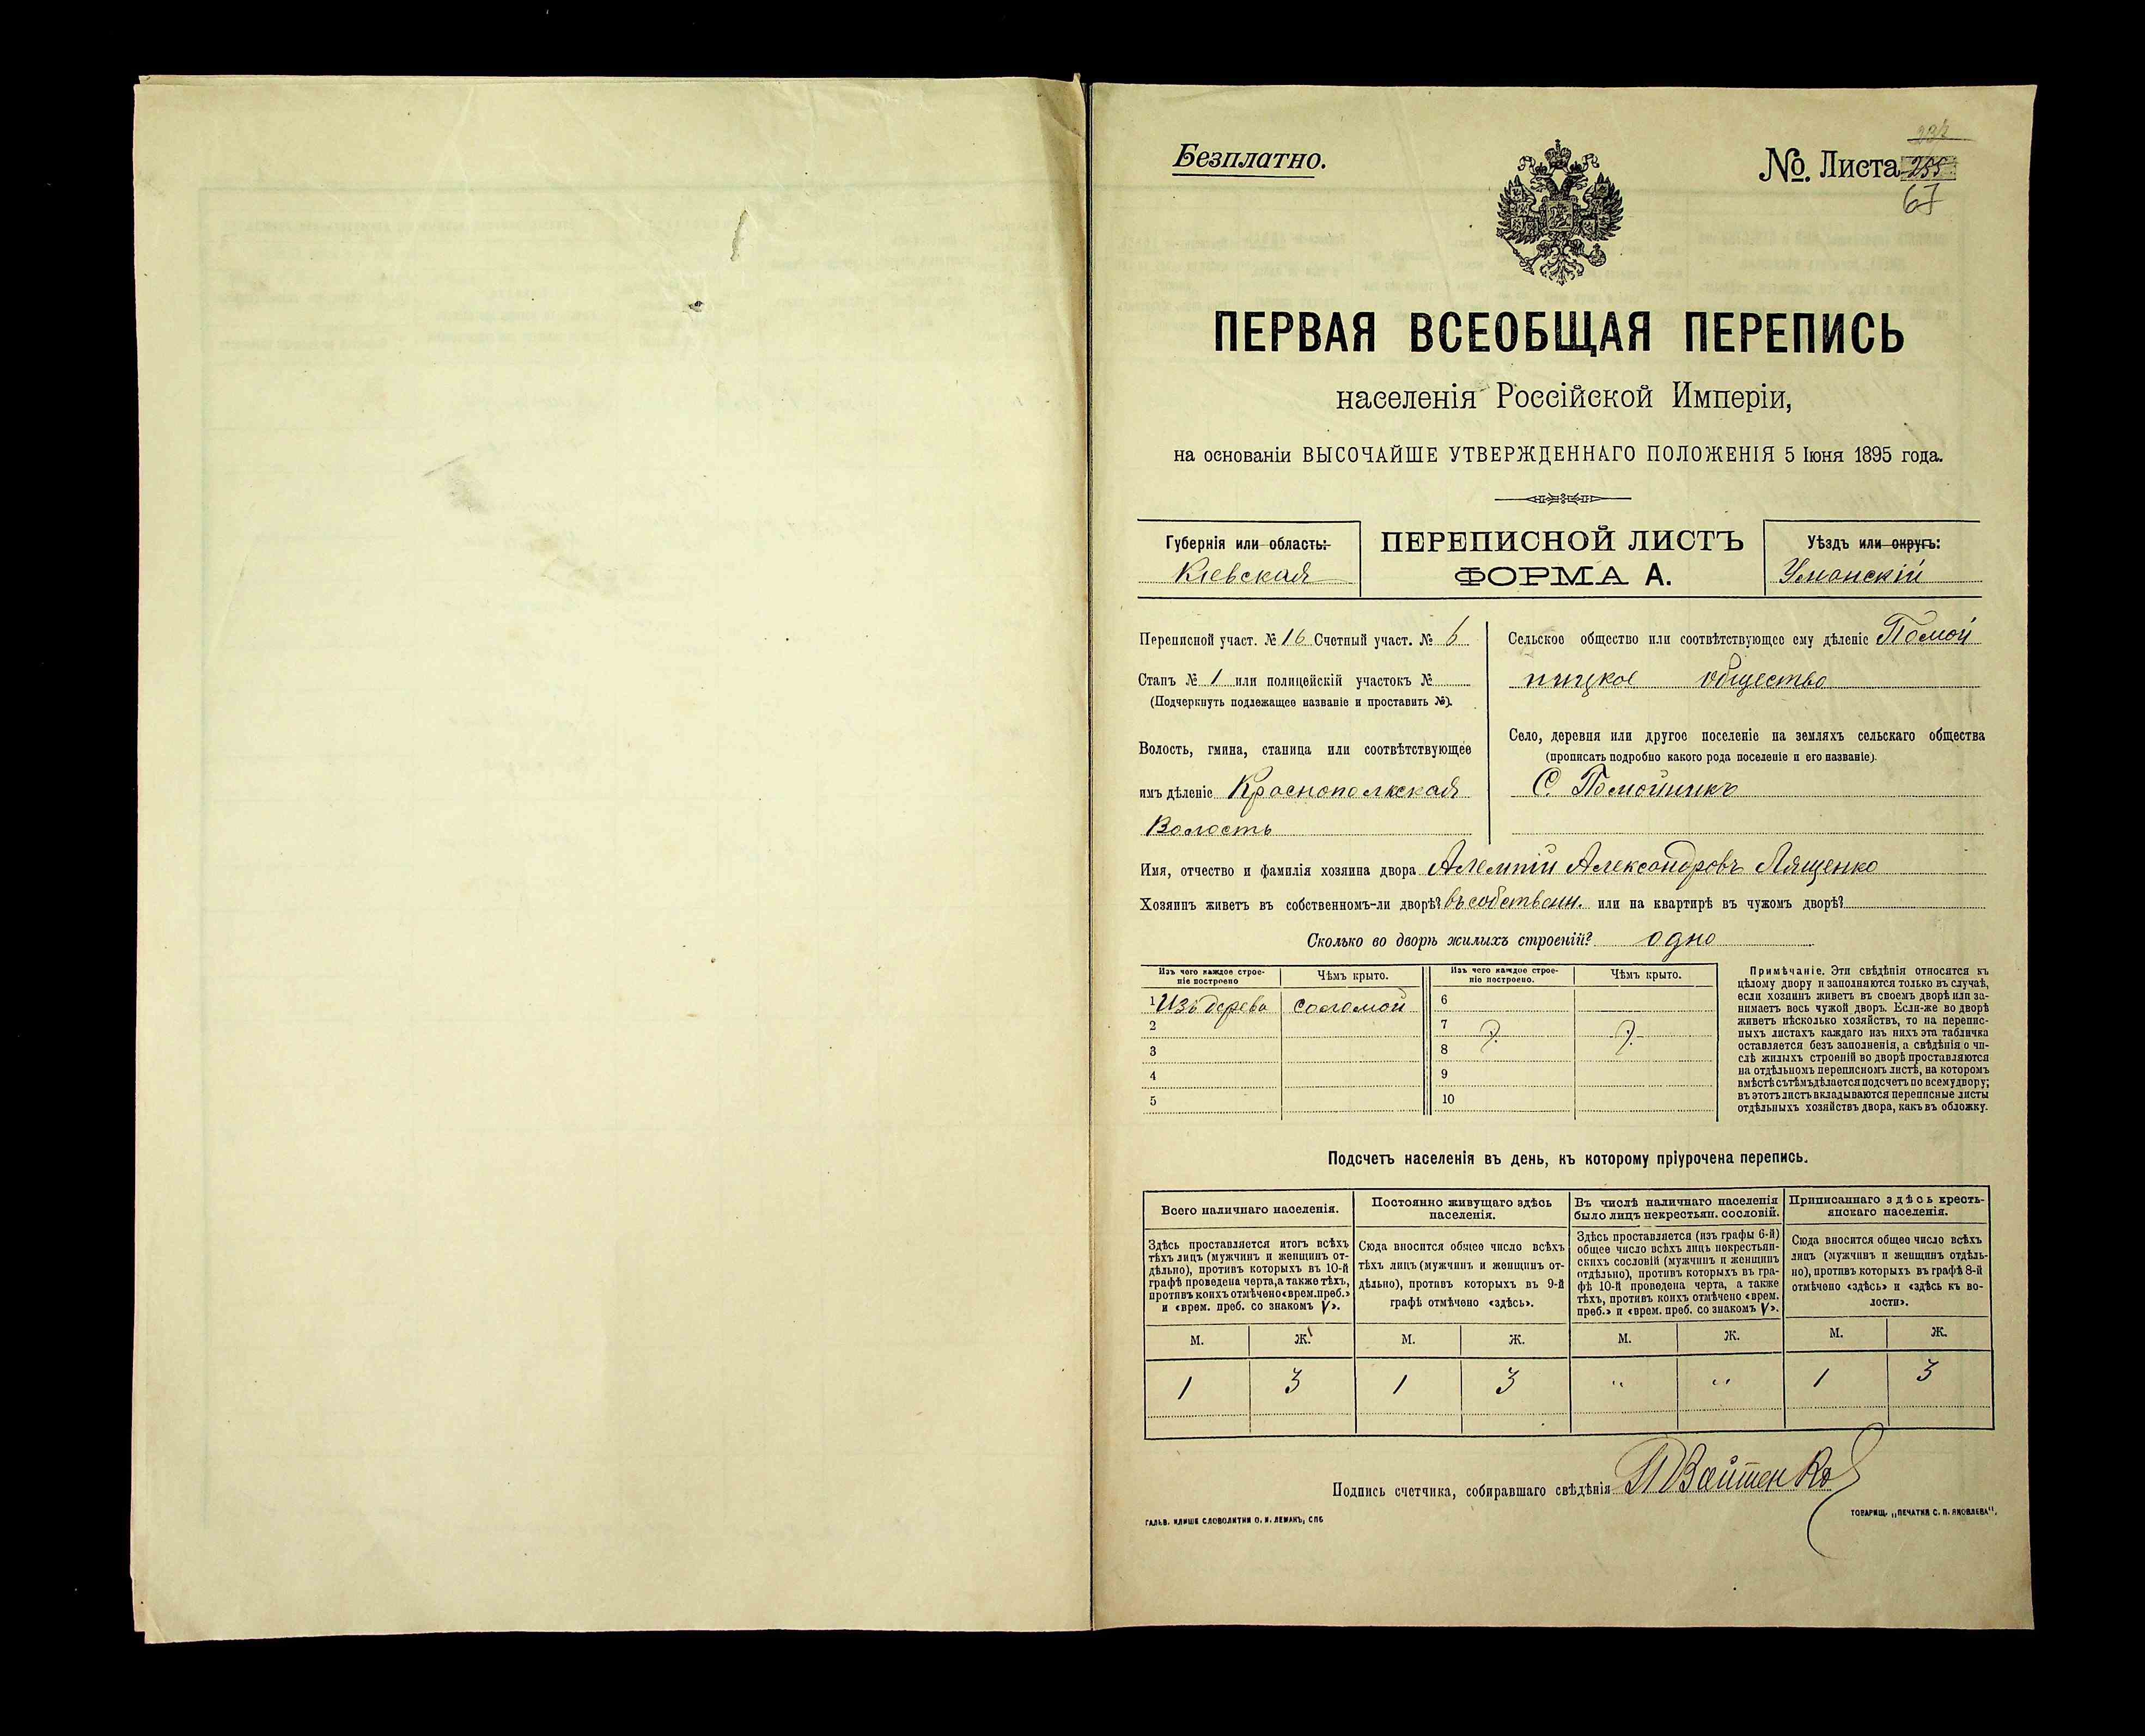 Безплатно.
№. Листа 255
67
ПЕРВАЯ ВСЕОБЩАЯ ПЕРЕПИСЬ
населенія Россійской Имперіи,
на основаніи ВЫСОЧАЙШЕ УТВЕРЖДЕННАГО ПОЛОЖЕНІЯ 5 Іюня 1895 года.
Губернія или область:
Кіевская
ПЕРЕПИСНОЙ ЛИСТЪ
ФОРМА А.
Уѣздъ или округъ:
Уманскій
Переписной участ. № 16 Счетный участ. № 6
Станъ № 1 или полицейскій участокъ №
(Подчеркнуть подлежащее названіе и проставить №).
Волость, гмина, станица или соотвѣтствующее
имъ дѣленіе Краснополкская
Волость
Сельское общество или соотвѣтствующее ему дѣленіе Помой
ницкое общество
Село, деревня или другое поселеніе на земляхъ сельскаго общества
(прописать подробно какого рода поселеніе и его названіе).
С. Помойникъ
Имя, отчество и фамилія хозяина двора Алемпій Александровъ Лященко
Хозяинъ живетъ въ собственномъ-ли дворѣ? въ собствен. или на квартирѣ въ чужомъ дворѣ?
Сколько во дворѣ жилыхъ строеній? одно
Изъ чего каждое строе-
ніе построено
Чѣмъ крыто.
Изъ чего каждое строе-
ніе построено.
Чѣмъ крыто.
1 Изъ дерева соломой
2
3
4
5
6
7
8
9
10
Примѣчаніе. Эти свѣдѣнія относятся къ
цѣлому двору и заполняются только въ случаѣ,
если хозяинъ живетъ въ своемъ дворѣ или за-
нимаетъ весь чужой дворъ. Если-же во дворѣ
живетъ нѣсколько хозяйствъ, то на перепис-
ныхъ листахъ каждаго изъ нихъ эта табличка
оставляется безъ заполненія, а свѣдѣнія о чи-
слѣ жилыхъ строеній во дворѣ проставляются
на отдѣльномъ переписномъ листѣ, на которомъ
вмѣстѣ съ тѣмъ дѣлается подсчетъ по всему двору;
въ этотъ листъ вкладываются переписные листы
отдѣльныхъ хозяйствъ двора, какъ въ обложку.
Подсчетъ населенія въ день, къ которому пріурочена перепись.
Всего наличнаго населенія.
Постоянно живущаго здѣсь
населенія.
Въ числѣ наличнаго населенія
было лицъ некрестьян. сословій.
Приписаннаго здѣсь кресть-
янскаго населенія.
Здѣсь проставляется итогъ всѣхъ
тѣхъ лицъ (мужчинъ и женщинъ от-
дѣльно), противъ которыхъ въ 10-й
графѣ проведена черта, а также тѣхъ,
противъ коихъ отмѣчено «врем. преб.»
и «врем. преб. со знакомъ V».
Сюда вносится общее число всѣхъ
тѣхъ лицъ (мужчинъ и женщинъ от-
дѣльно), противъ которыхъ въ 9-й
графѣ отмѣчено «здѣсь».
Здѣсь проставляется (изъ графы 6-й)
общее число всѣхъ лицъ некрестьян-
скихъ сословій (мужчинъ и женщинъ
отдѣльно), противъ которыхъ въ гра-
фѣ 10-й проведена черта, а также
тѣхъ, противъ коихъ отмѣчено «врем.
преб.» и «врем. преб. со знакомъ V».
Сюда вносится общее число всѣхъ
лицъ (мужчинъ и женщинъ отдѣль-
но), противъ которыхъ въ графѣ 8-й
отмѣчено «здѣсь» и «здѣсь къ во-
лости».
М. Ж. М. Ж. М. Ж. М. Ж.
1 3 1 3 " " 1 3
Подпись счетчика, собиравшаго свѣдѣнія П Войтенко
ГАЛЬВ. КЛИШЕ СЛОВОЛИТНИ О. И. ЛЕМАНЪ, СПБ
ТОВАРИЩ. „ПЕЧАТНЯ С. П. ЯКОВЛЕВА".